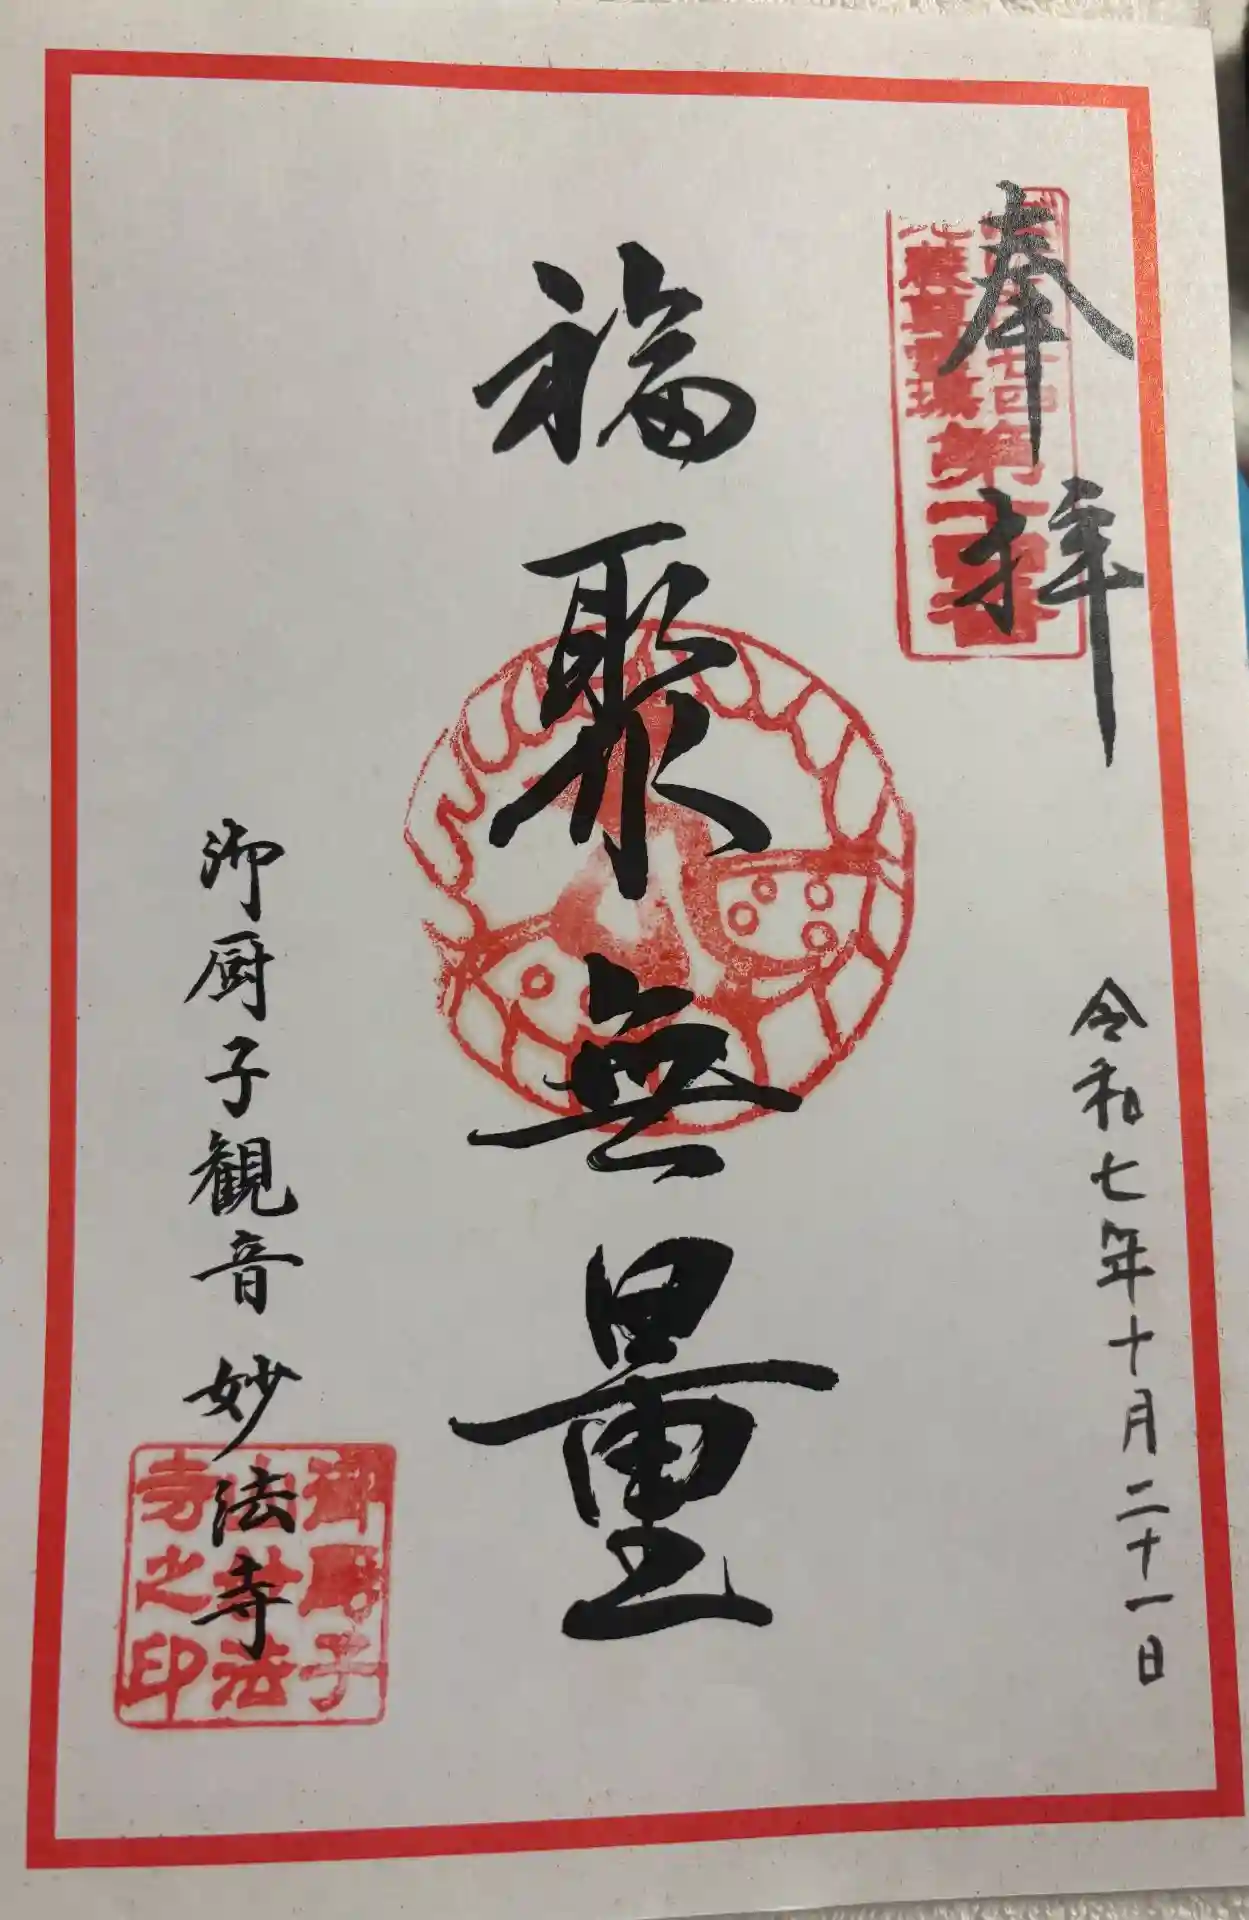 奉拝
令和七年十月二十一日
福聚無量
御厨子観音 妙法寺
御厨子
山妙法
寺之印